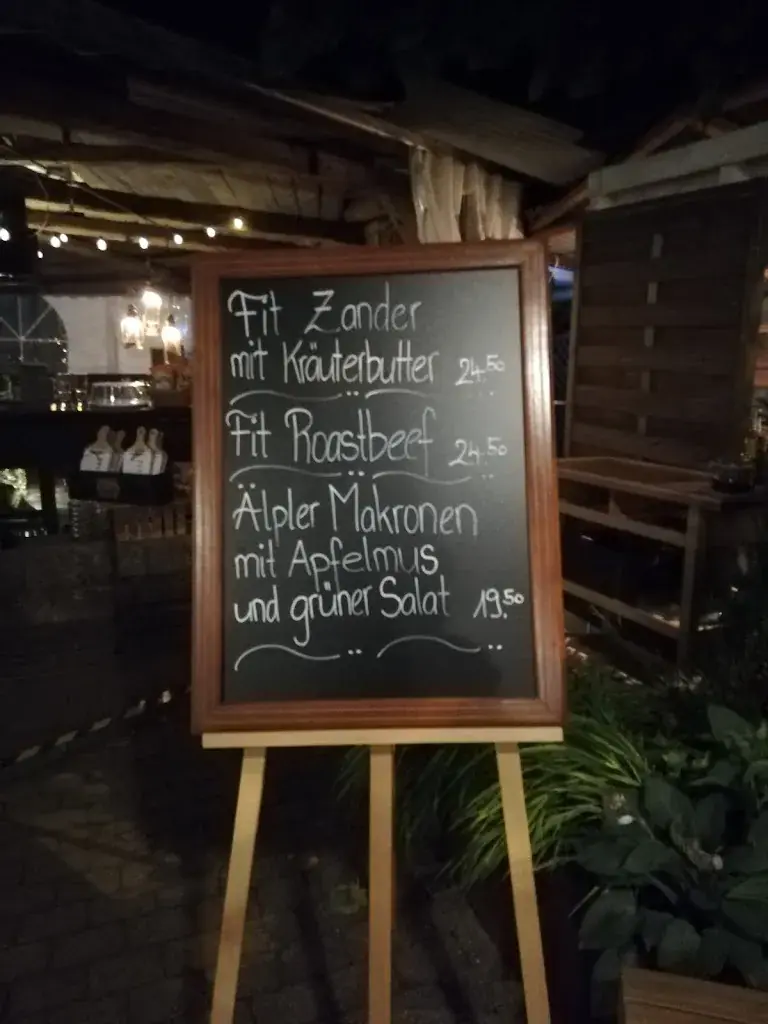 Fit Zander
mit Kräuterbutter 24.50
Fit Roastbeef 24.50
Älpler Makronen
mit Apfelmus
und grüner Salat 19.50